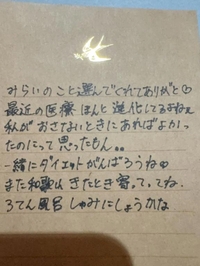 みらいのこと選んでくれてありがと♡
最近の医療ほんと進化してるよねぇ
私がおさないときにあればよかっ
たのにって思ったもん。。
一緒にダイエットがんばろうね♡
また和歌山きたとき寄ってってね。
ろてん風呂しゅみにしょうかな